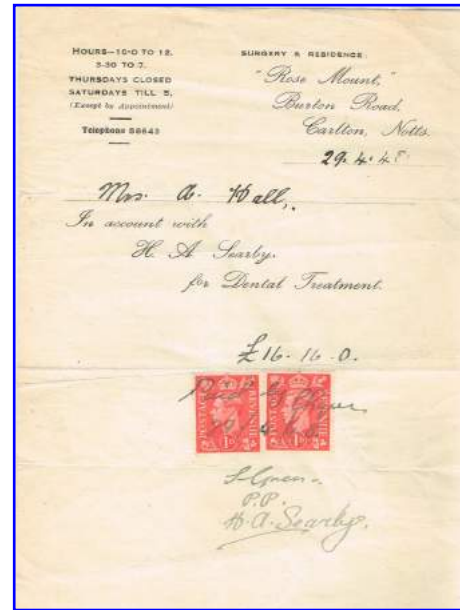 HOURS—10-0 TO 12.
3-30 TO 7.
THURSDAYS CLOSED
SATURDAYS TILL 5,
(Except by Appointment)
Telephone 58643
SURGERY & RESIDENCE:
"Rose Mount,"
Burton Road,
Carlton, Notts.
29. 4. 48.
Mrs. A. Hall,
In account with
H. A. Searby.
for Dental Treatment.
£16-16-0.
Paid
POSTAGE 1D REVENUE
POSTAGE 1D REVENUE
S. Green
P.P.
H. A. Searby.